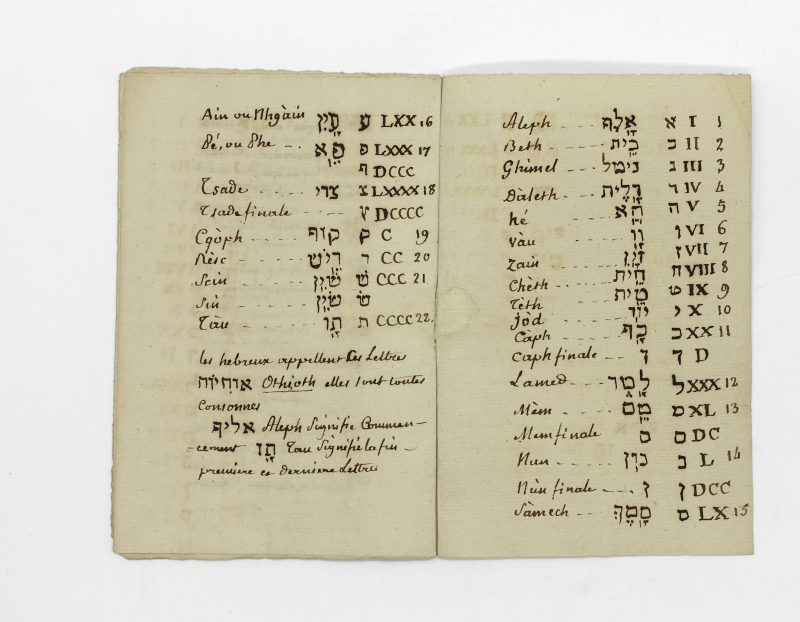 Aleph אָלֶף א I 1
Beth בֵית ב II 2
Ghimel גימל ג III 3
Dàleth דָלֶית ד IV 4
hé הֵא ה V 5
vàu וָו ו VI 6
Zain זַיִן ז VII 7
Chèth חֵית ח VIII 8
Tèth טֵית ט IX 9
jòd יוֹד י X 10
Càph כָף כ XX 11
Caph finale ך ך D
Lamed לָמֶד ל XXX 12
Mèm מֵם מ XL 13
Mem finale ם ם DC
Nun נוּן נ L 14
Nùn finale ן ן DCC
Sàmech סָמֶך ס LX 15
Ain ou Nhgàin עַיִן ע LXX 16
Pé, ou Phe פֵא פ LXXX 17
ף DCCC
Tsade צדי צ LXXXX 18
Tsade finale ץ DCCCC
Cqòph קוֹף ק C 19
Rèsc רֵיש ר CC 20
Scin שִׁין שׁ CCC 21
Sin שִׂין שׂ
Tàu תָו ת CCCC 22
les hebreux appellent Ces Lettres
אותיות Othioth elles sont toutes
Consonnes
אליף Aleph Signifie Commen-
cement תָו Tau Signifie la fin
premiere et derniere Lettre